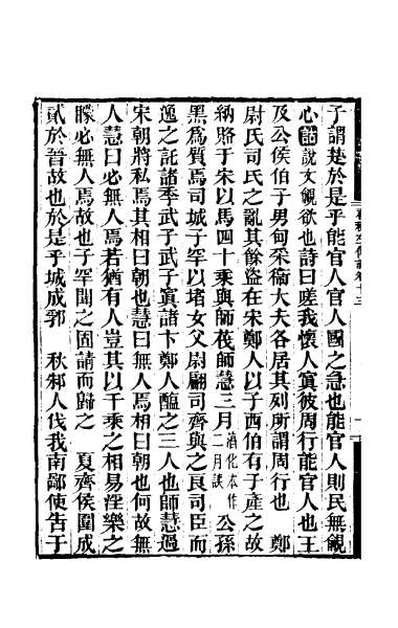 子謂楚於是乎能官人官人國之急也能官人則民無覦
心詁說文覦欲也詩曰嗟我懷人寘彼周行能官人也王
及公侯伯子男甸采衞大夫各居其列所謂周行也　鄭
尉氏司氏之亂其餘盜在宋鄭人以子西伯有子產之故
納賂于宋以馬四十乘與師茷師慧三月淳化本作二月誤公孫
黑爲質焉司城子罕以堵女父尉翩司齊與之良司臣而
逸之託諸季武子武子寘諸卞鄭人醢之三人也師慧過
宋朝將私焉其相曰朝也慧曰無人焉相曰朝也何故無
人慧曰必無人焉若猶有人豈其以千乘之相易淫樂之
矇必無人焉故也子罕聞之固請而歸之　夏齊侯圍成
貳於晉故也於是乎城成郛　秋邾人伐我南鄙使告于
春秋左傳詁卷十三